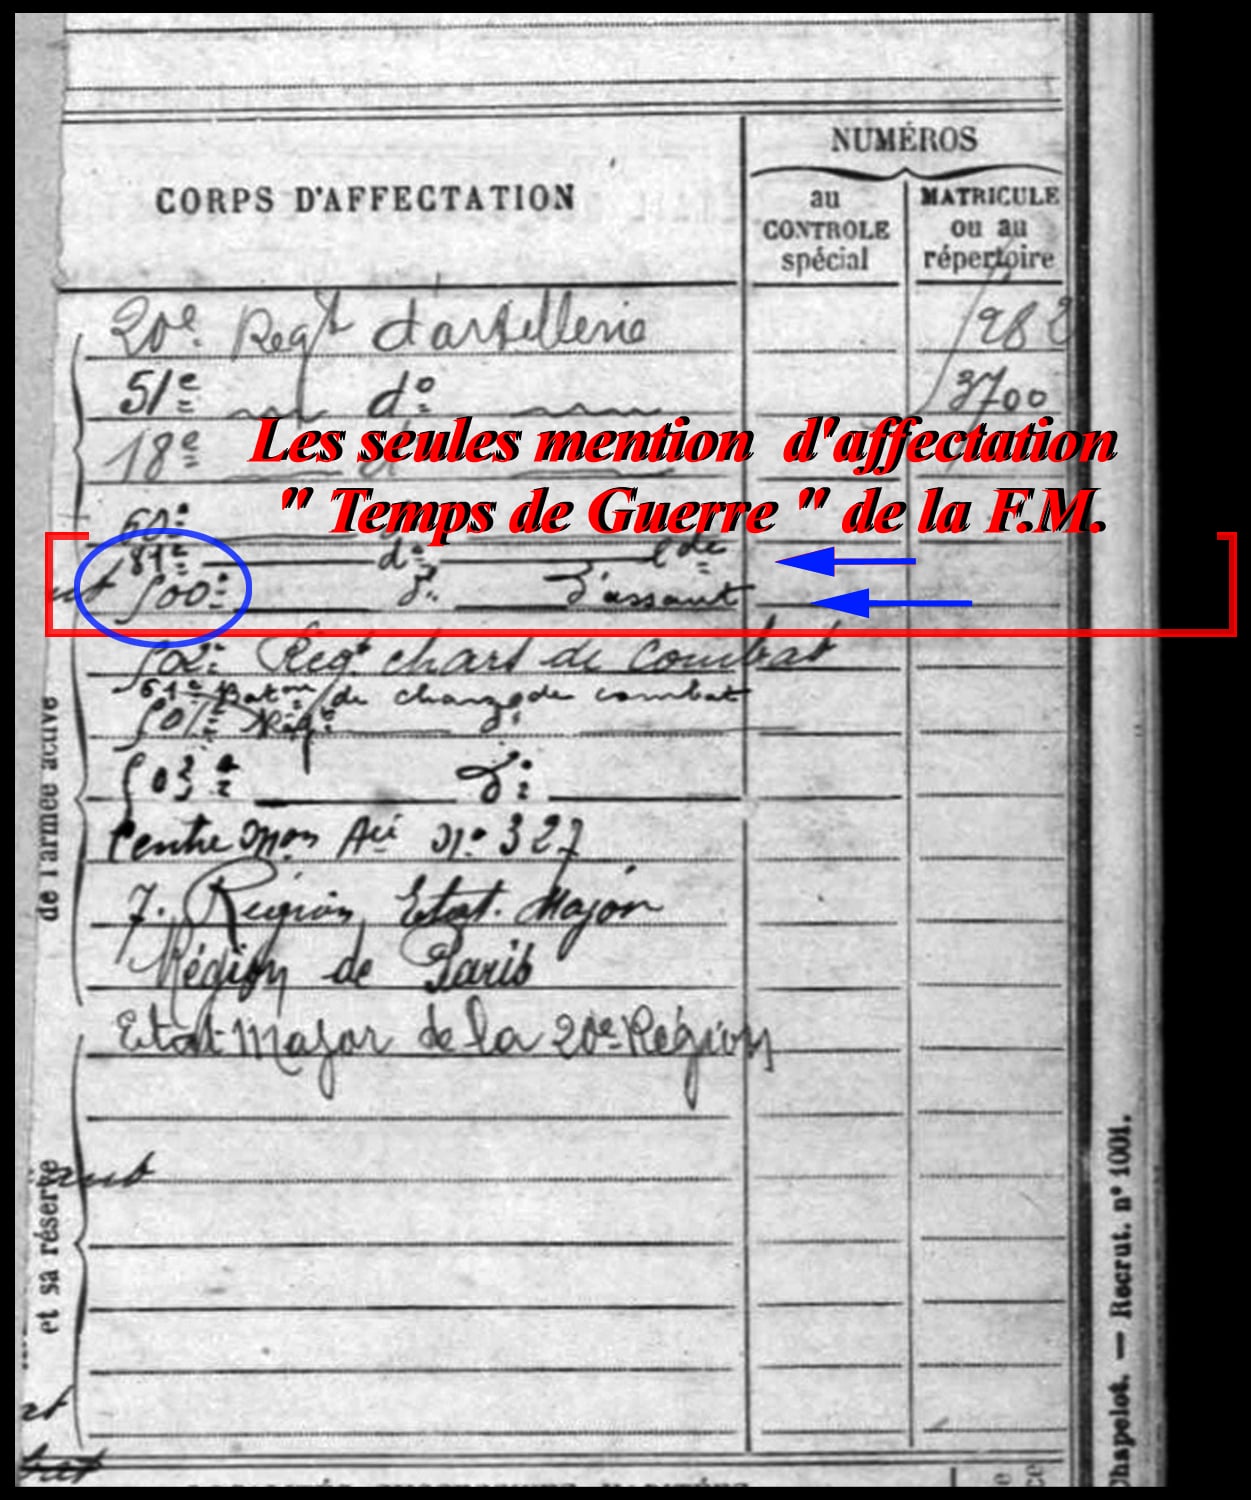 NUMÉROS
CORPS D'AFFECTATION
au CONTROLE spécial
MATRICULE ou au répertoire
20e Regt d'artillerie 982
51e do 3700
Les seules mention d'affectation
18e
" Temps de Guerre " de la F.M.
60e
81e do lde
500e do d'assaut
502e Regt chars de combat
51e Baton de chars de combat
501e Regt do
503e do
Centre Mon Aie No 327
7. Région Etat. Major
Région de Paris
Etat Major de la 20e Région
de l'armée active
et sa réserve
Chapelot. — Recrut. n° 1001.